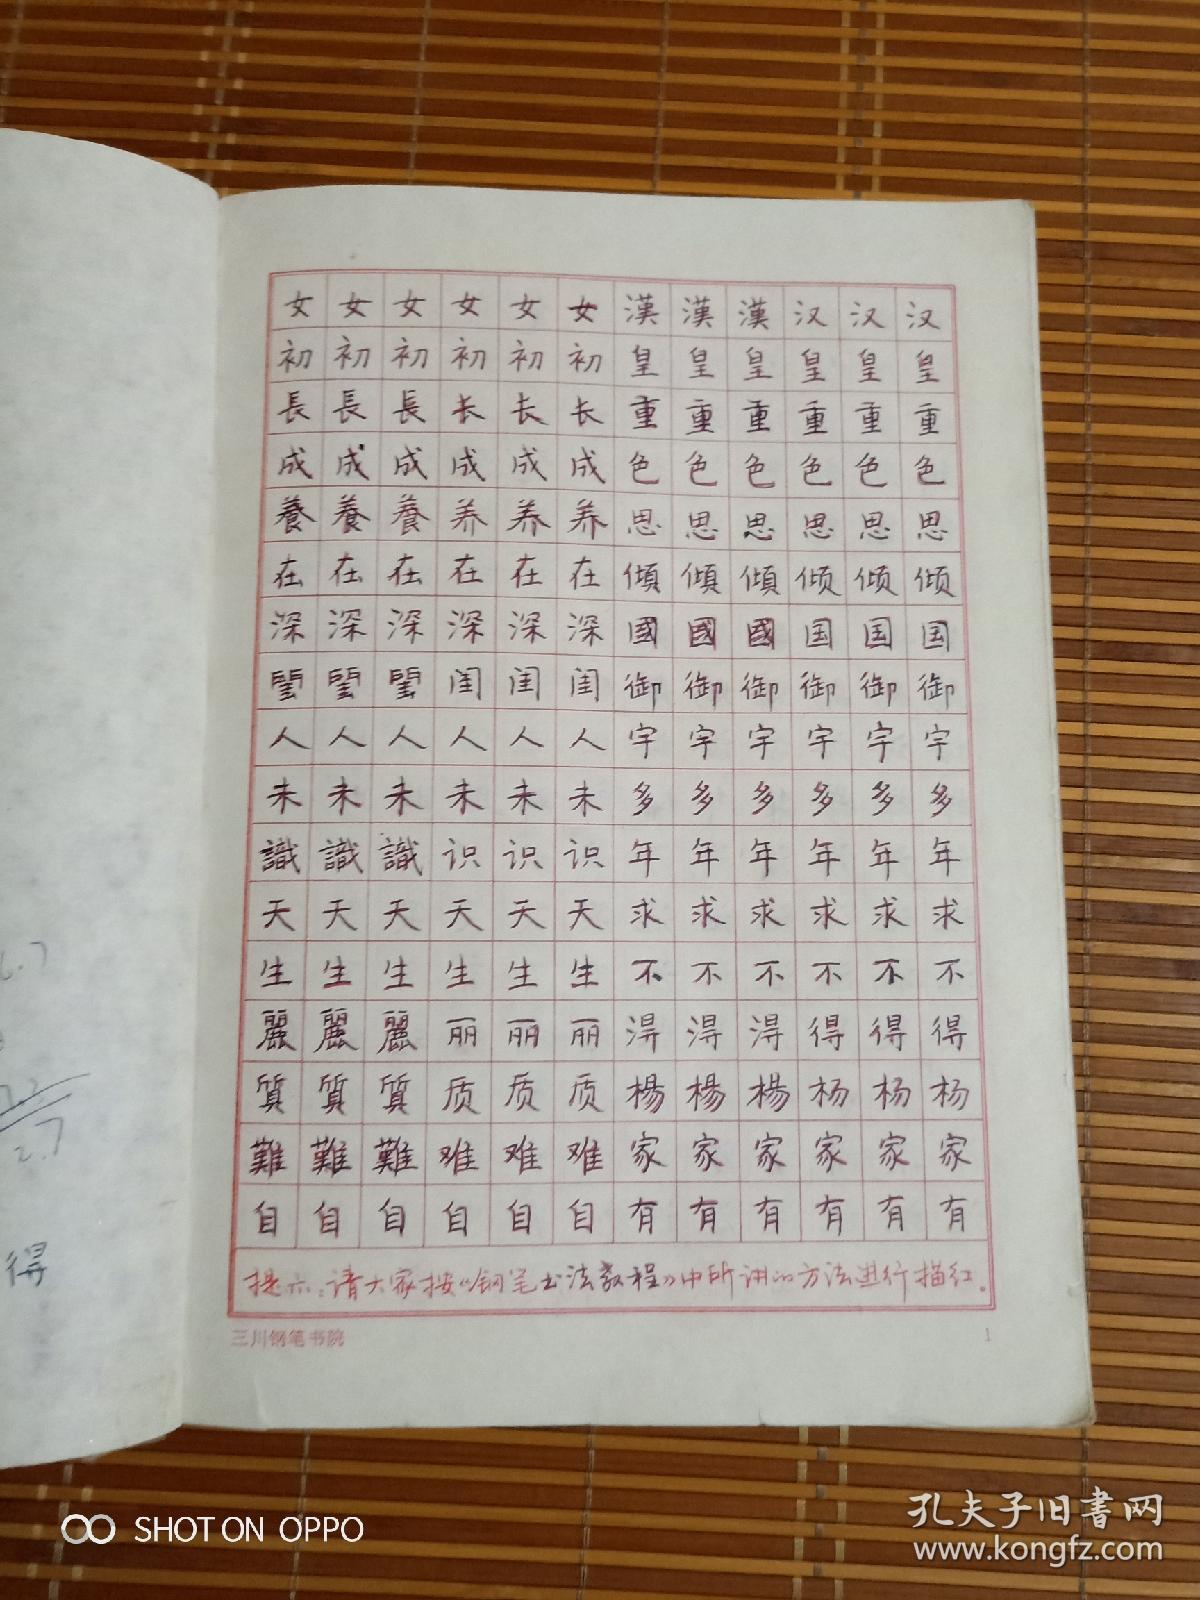 女女女女女女漢漢漢汉汉汉
初初初初初初皇皇皇皇皇皇
長長長长长长重重重重重重
成成成成成成色色色色色色
養養養养养养思思思思思思
在在在在在在傾傾傾倾倾倾
深深深深深深國國國国国国
閨閨閨闺闺闺御御御御御御
人人人人人人宇宇宇宇宇宇
未未未未未未多多多多多多
識識識识识识年年年年年年
天天天天天天求求求求求求
生生生生生生不不不不不不
麗麗麗丽丽丽淂淂淂得得得
質質質质质质楊楊楊杨杨杨
難難難难难难家家家家家家
自自自自自自有有有有有有
提示:请大家按《钢笔书法教程》中所讲的方法进行描红。
三川钢笔书院 1
2.7
得
SHOT ON OPPO
孔夫子旧書网
www.kongfz.com